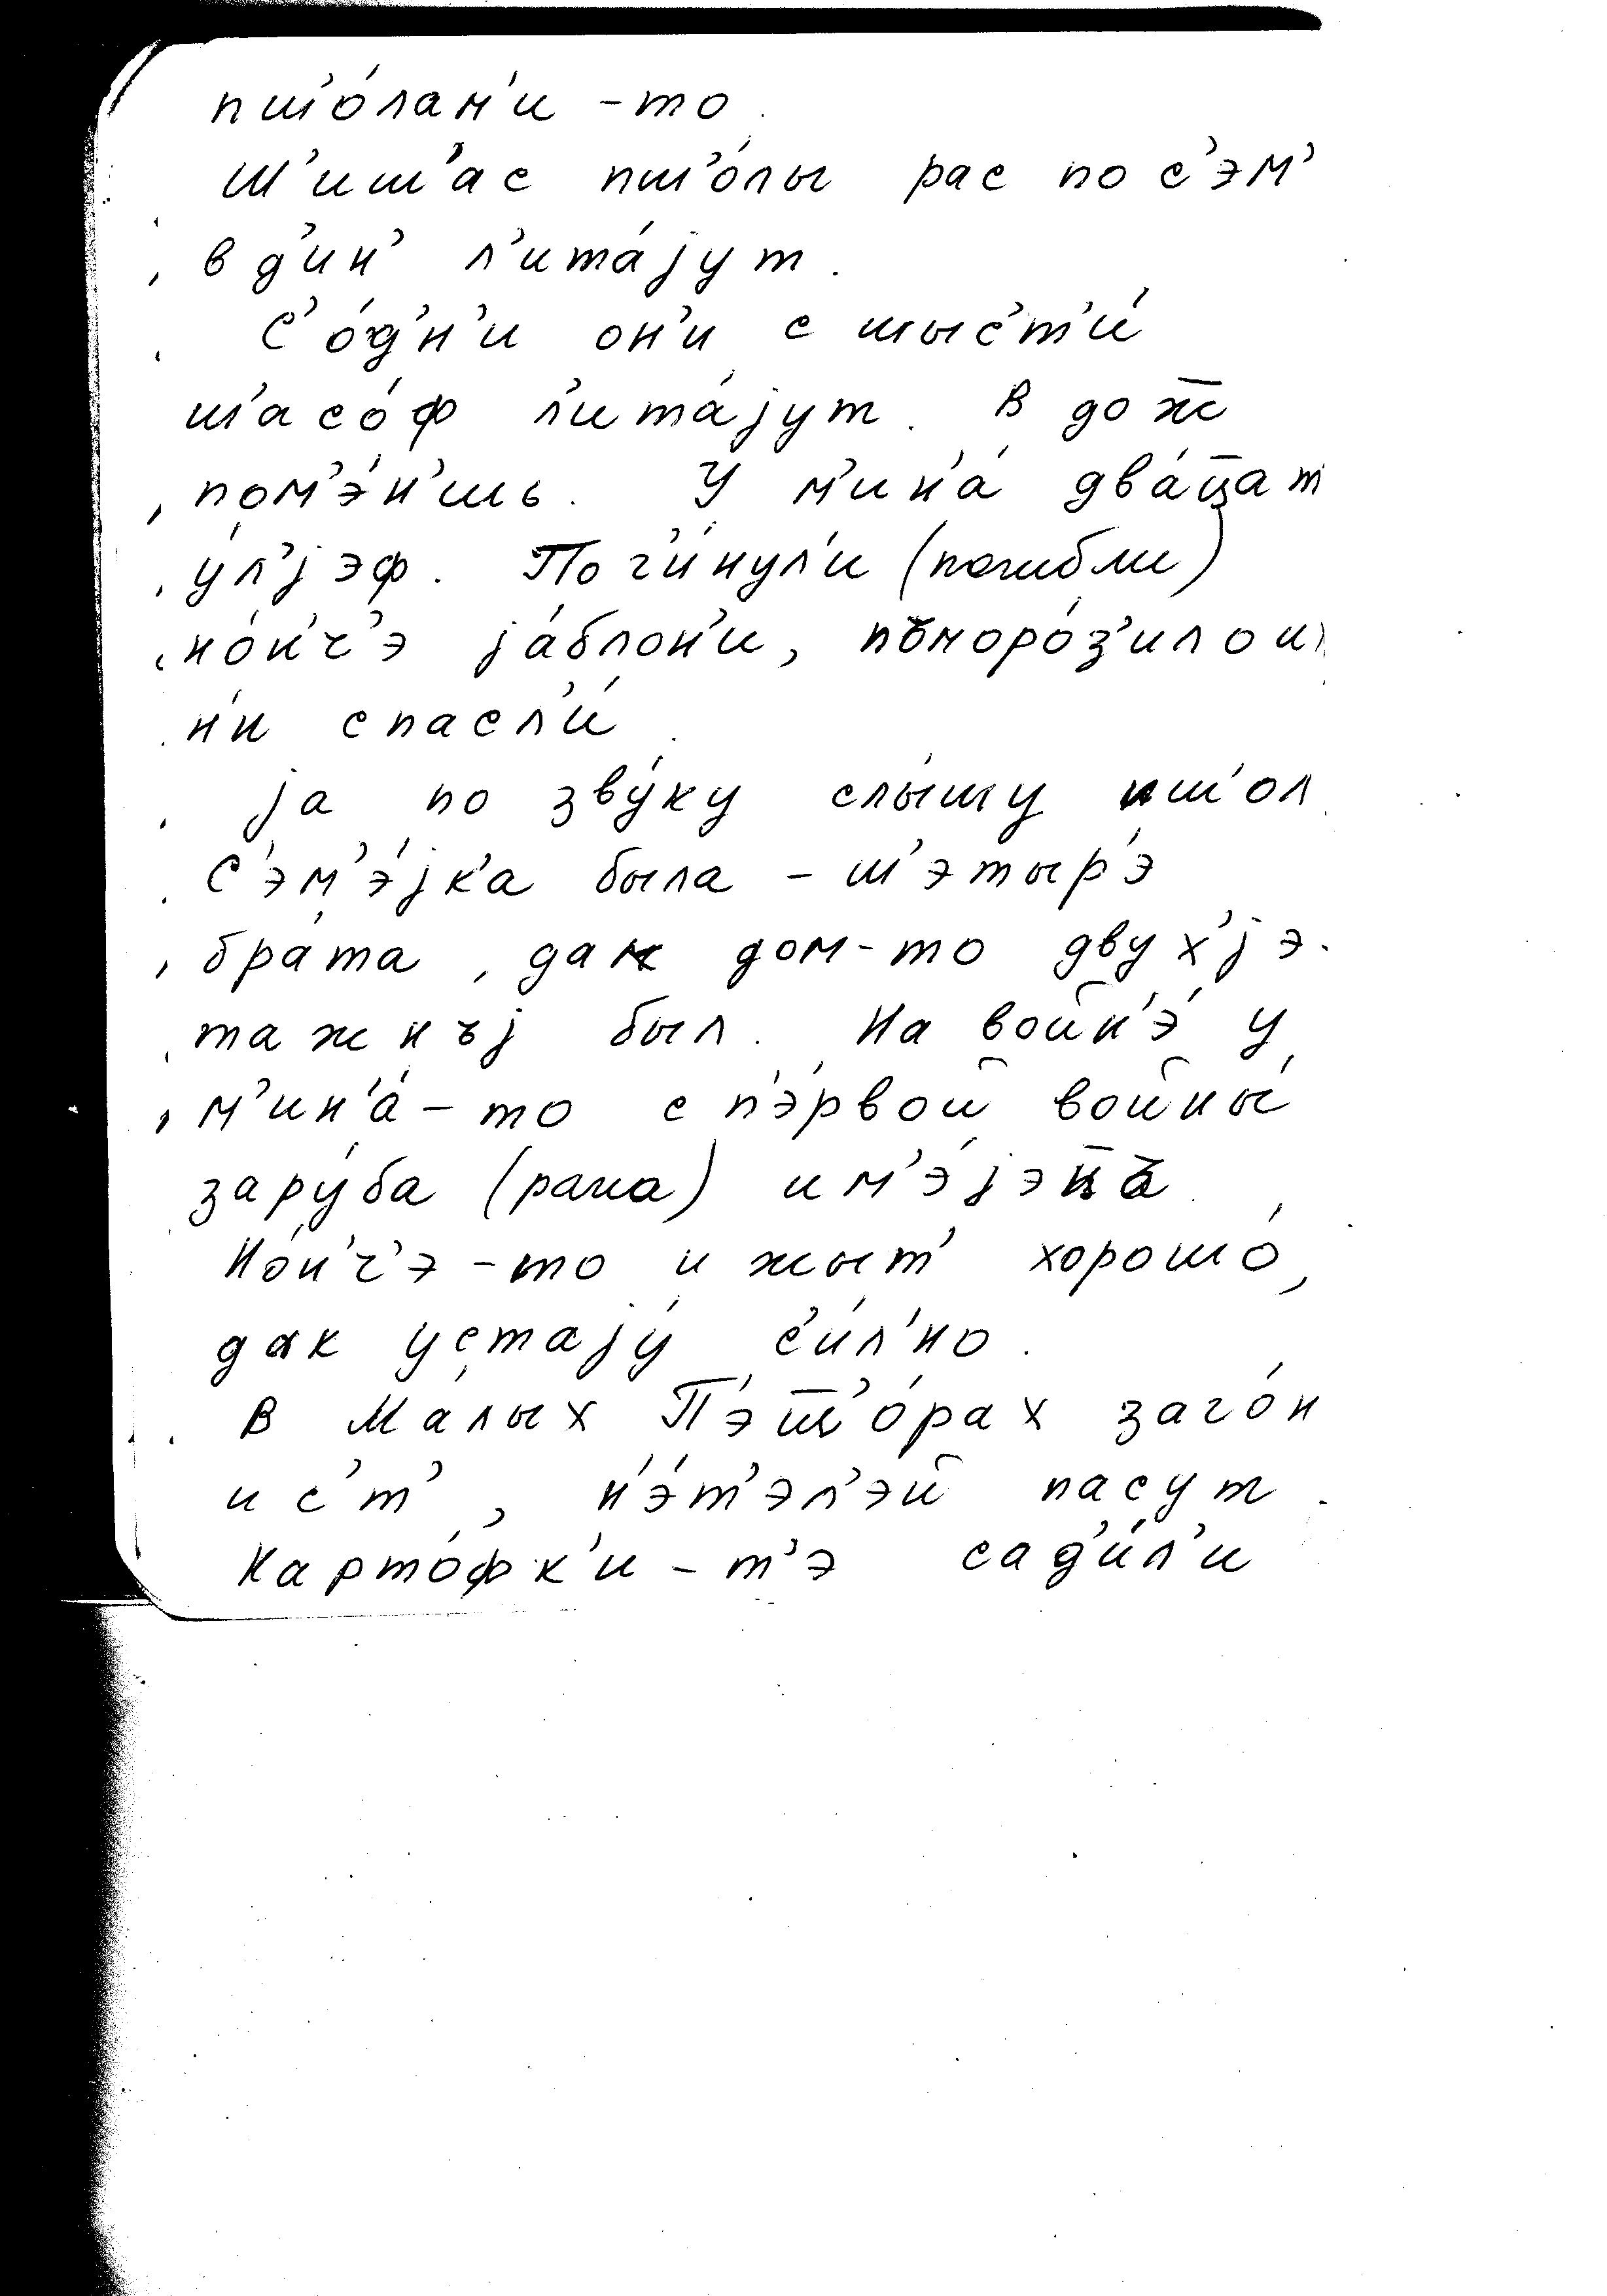 пш'о́лам'и -то.
Ш'иш'ас пш'о́лы рас по с'эм'
в д'ин' л'ита́јут.
С'о́д'н'и он'и с шыс'т'и́
ш'асо́ф л'ита́јут. В дож̅
пом'э́н'ишь. У м'ин'а́ два́ц̅ат'
у́л'јэф. Пог'и́нул'и (погибли)
но́н'ч'э ја́блон'и, поморо́з'ило их
н'и спасл'и́.
ја по зву́ку слы́шу пш'ол.
С'эм'э́јк'а была – ш'этыр'э
бра́та, дак дом-то двух'јэ-
тажнъј был. На войн'э́ у
м'ин'а́ – то с п'э́рвой войны́
зару́ба (рана) им'э́јэц̅ъ.
Но́н'ч'э -то и жыт' хорошо́,
дак устају́ с'и́л'но.
В Ма́лых П'эш̅'о́рах заго́н
ис'т', н'э́т'эл'эй пасут.
Карто́фк'и – т'э сад'и́л'и